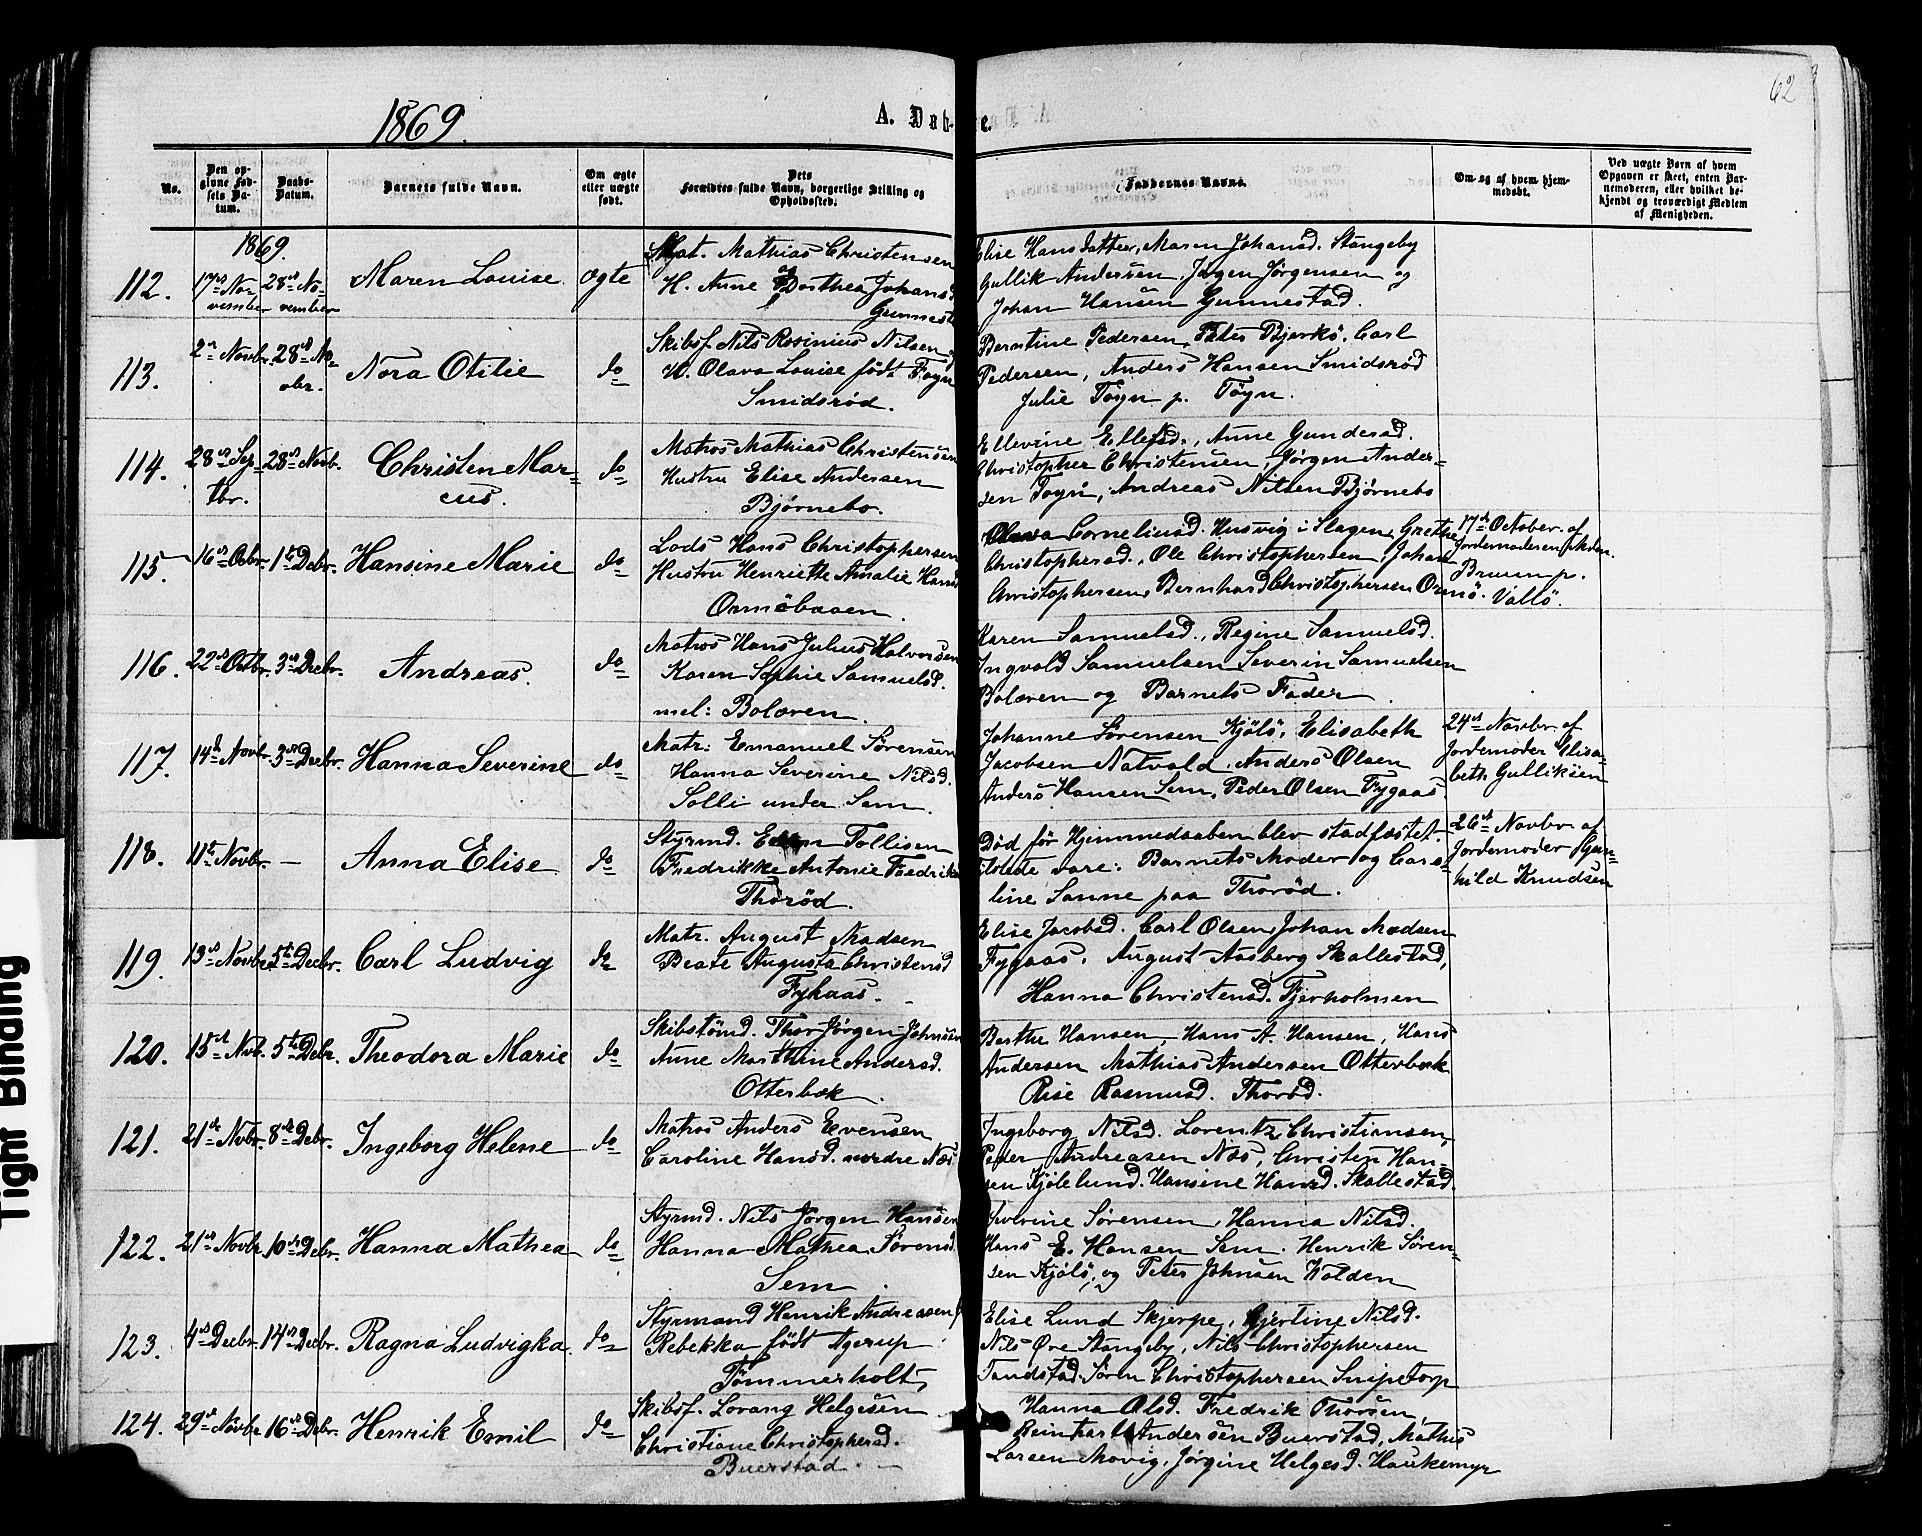 62
1869.
A. Døb-
e.
No.
Den op-
givne Fød-
sels Da-
tum.
Daabs-
Datum.
Barnets fulde Navn.
Om ægte
eller uægte
født.
Dets
Forældres fulde Navn, borgerlige Stilling og
Opholdssted.
Faddernes Navne.
Om og af hvem hjem-
medøbt.
Ved uægte Børn af hvem
Opgaven er skeet, enten Bar-
nemoderen, eller hvilket be-
kjendt og troværdigt Medlem
af Menigheden.
1869.
112.
17de No-
vember
28de No-
vember
Maren Louise
Ægte
Mat. Mathias Christensen
H. Anne Dorthea Johansd
Gunnest
Elise Hansdatter, Maren Johansd. Stangeby
Gullik Andersen, Jørgen Jørgensen og
Johan Hansen Gunnestad.
113.
2n Novbr.
28de No-
vbr.
Nora Otilie
do
Skibsf. Nils Rosinius Nilsen
H. Olava Louise født Føyn
Smidsrød.
Berntine Pedersen, Peter Bjerkø, Carl
Pedersen, Anders Hansen Smidsrød
Julie Føyn p. Føyn.
114.
28de Sep-
tbr.
28de Novb.
Christen Mar-
cus.
do
Matros Mathias Christensen
Hustru Elise Andersen
Bjørnebo.
Ellevine Ellefsd., Anne Gundersd.
Christopher Christensen, Jørgen Ander-
sen Føyn, Andreas Nilsen Bjørnebo
115.
16de Octbr.
1ste Debr.
Hansine Marie
do
Lods Hans Christophersen
Hustru Henriette Amalie Hansd
Ormøbaaen
Olava Corneliusd. Husvig i Slagen, Grethe
Christophersd., Ole Christophersen, Johan
Christophersen, Bernhard Christophersen Ormø.
17de October af
Jordemoderen
Bruun p.
Vallø.
116.
22de Octbr.
3de Decbr.
Andreas.
do
Matros Hans Julius Halvorsen
Karen Sophie Samuelsd.
mel: Bolæren.
Karen Samuelsd., Regine Samuelsd.
Ingvald Samuelsen Severin Samuelsen
Bolæren og Barnets Fader
117.
14de Novb.
3de Decbr.
Hanna Severine
do
Matr: Emanuel Sørensen
Hanna Severine Nilsd.
Solli under Sem.
Johanne Sørensen Kjølø, Elisabeth
Jacobsen Natvald, Anders Olsen
Anders Hansen Sem, Peder Olsen Fygaas
24de Novbr af
Jordemoder Elisa-
beth Gulliksen
118.
11te Novbr.
—
Anna Elise
do
Styrmd. Tollisen
Fredrikke Antonie Fredriks
Thorød.
Død før Hjemmedaaben blev stadfæstet.
ilstede vare: Barnets Moder og Caro-
line Sanne paa Thorød.
26de Novbr af
Jordemoder Gun-
hild Knudsen
119.
13de Novbr.
5te Decbr.
Carl Ludvig
do
Matr. August Madsen
Beate Augusta Christensd
Fykaas.
Elise Jacobsd. Carl Olsen, Johan Madsen
Fygaas. August Aasberg Skallestad,
Hanna Christensd. Fjerholmen
120.
15de Nvb.
5te Debr.
Theodora Marie
do
Skibstømd. Thor Jørgen Johnsen
Anne Marthine Andersd.
Otterbæk.
Berthe Hansen, Hans A. Hansen, Hans
Andersen Mathias Andersen Otterbæk
Elise Rasmusd. Thorød.
121.
21de Nvbr.
8de Debr.
Ingeborg Helene
do
Matros Anders Evensen
Caroline Hansd. nordre Næs
Ingeborg Nilsd. Lorentz Christiansen,
Peder Andreasen Næs, Christen Han-
sen Kjølelund. Hansine Hansd. Skallestad.
122.
21de Novbr.
10de Debr.
Hanna Mathea
do
Styrmd. Nils Jørgen Hansen
Hanna Mathea Sørensd.
Sem.
Severine Sørensen, Hanna Nilsd.
Hans E. Hansen Sem. Henrik Søren-
sen Kjølø, og Peter Johnsen Holden
123.
4de Decbr.
14de Debr.
Ragna Ludvigka.
do
Styrmand Henrik Andreasen
Rebekka født Agerup
Tømmerholt,
Elise Lund Skjerpe, Gjertine Nilsd.
Nils Øre Stangeby, Nils Christophersen
Tandstad. Søren Christophersen Snipetorp
124.
29de Novbr.
16de Debr.
Henrik Emil
do
Skibsf. Lorang Helgesen
Christiane Christophersd.
Buerstad.
Hanna Olsd. Fredrik Thorsen,
Reinhart Andersen Buerstad, Mathis
Larsen Movig, Jørgine Helgesd. Haukemyr
Tight Binding